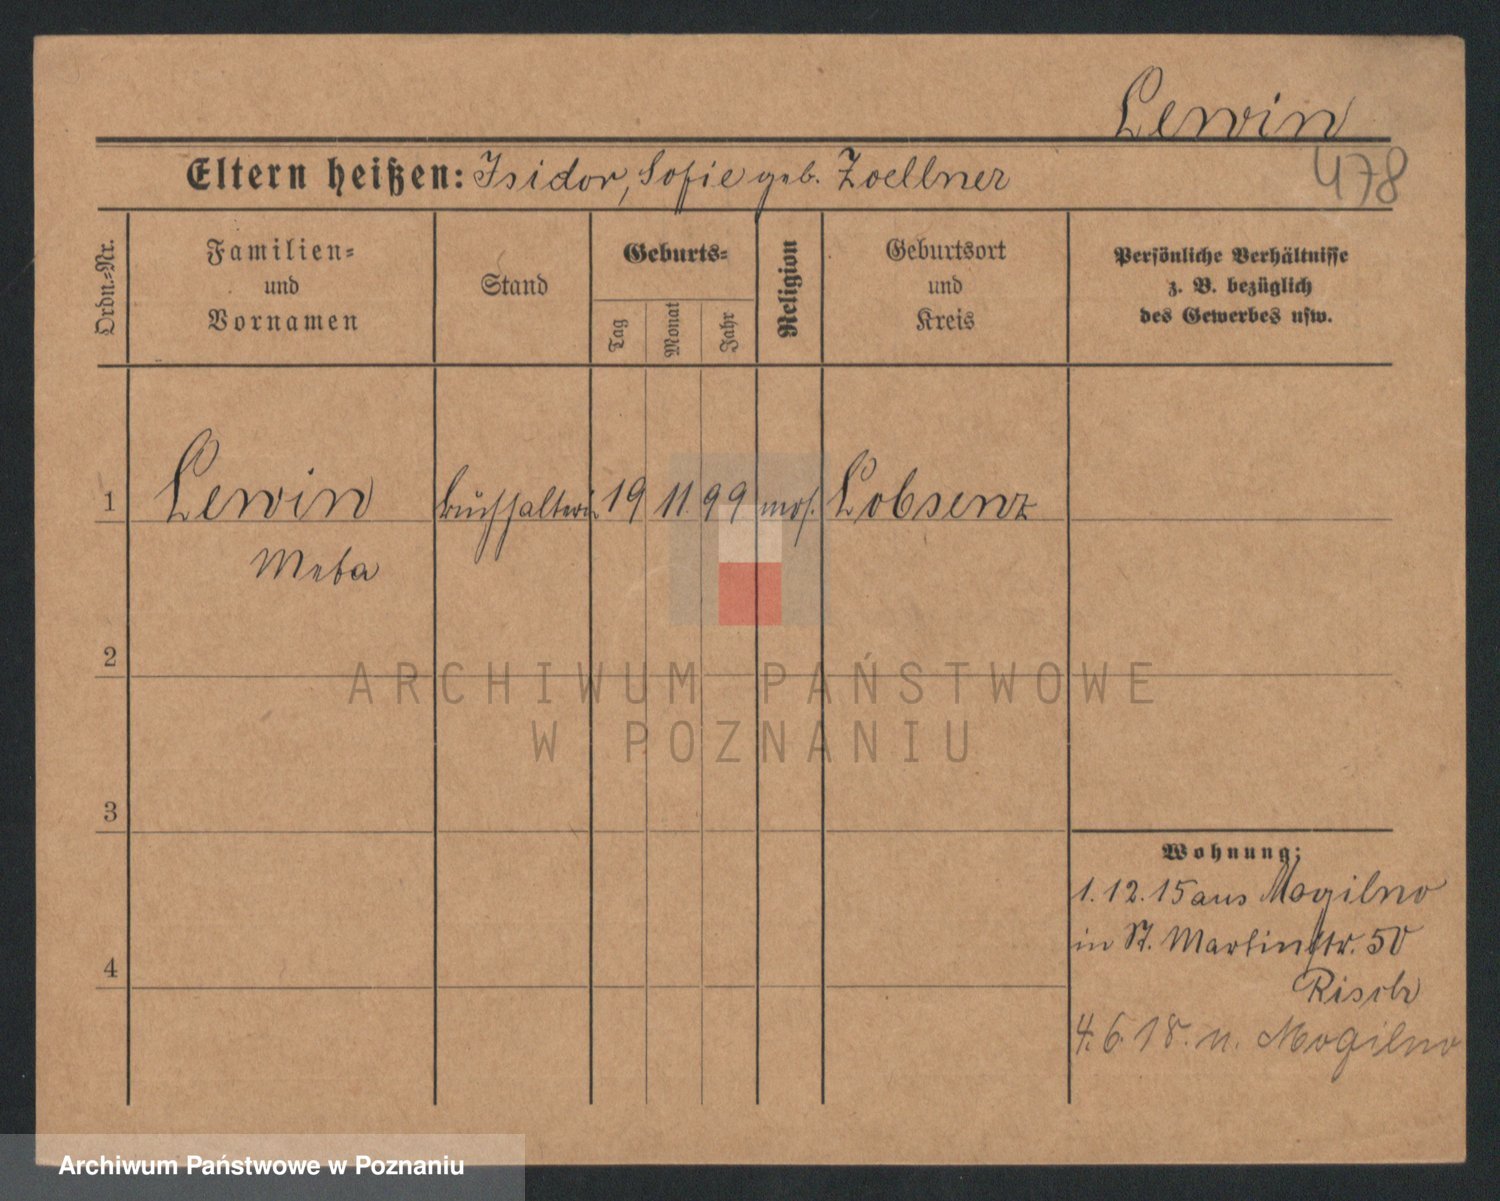 Lewin
Eltern heißen: Isidor, Sofie geb. Zoellner
478
Ordn.-Nr.
Familien-
und
Vornamen
Stand
Geburts-
Tag
Monat
Jahr
Religion
Geburtsort
und
Kreis
Persönliche Verhältnisse
z. B. bezüglich
des Gewerbes usw.
1 Lewin Buchhalterin 19 11. 99 mos. Lobsenz
Meta
2
ARCHIWUM PAŃSTWOWE
W POZNANIU
3
Wohnung:
1. 12. 15 aus Mogilno
in St. Martinstr. 50
4
4. 6. 18. n. Mogilno
Archiwum Państwowe w Poznaniu